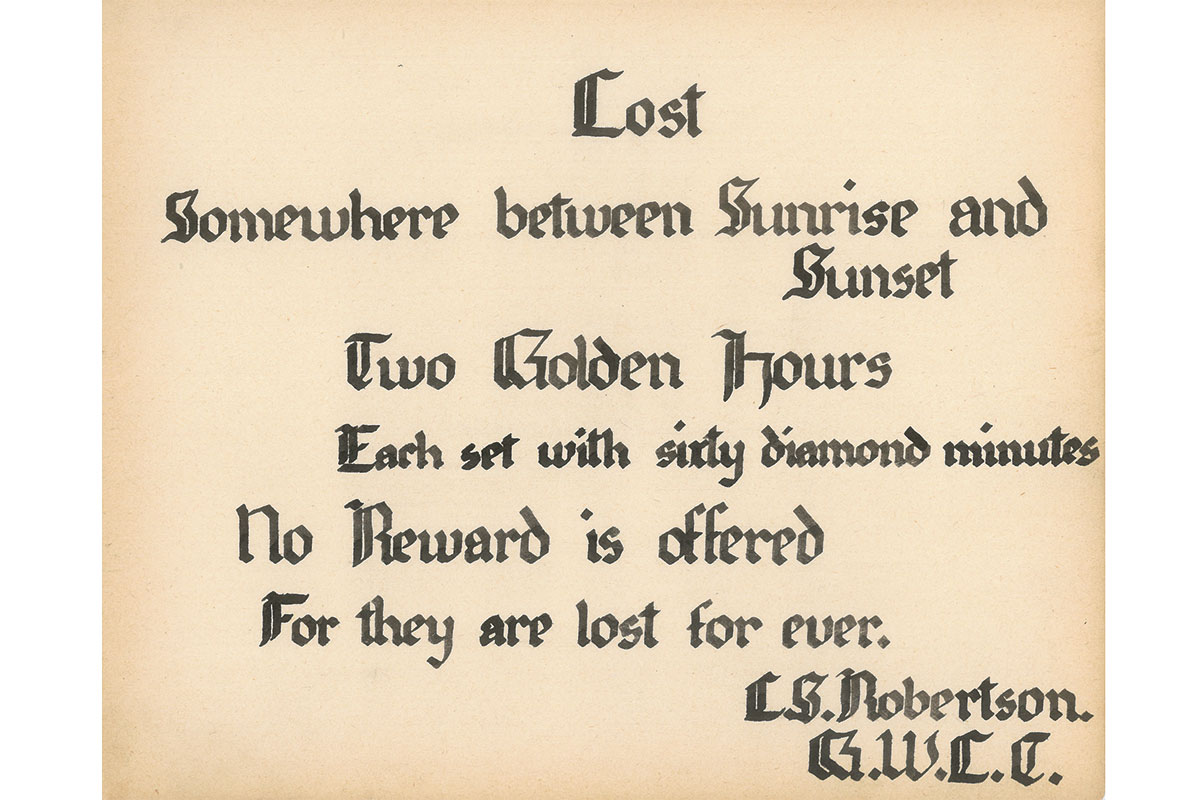 Lost
Somewhere between Sunrise and
Sunset
Two Golden Hours
Each set with sixty diamond minutes
No Reward is offered
For they are lost for ever.
LS.Robertson.
G.W.L.C.